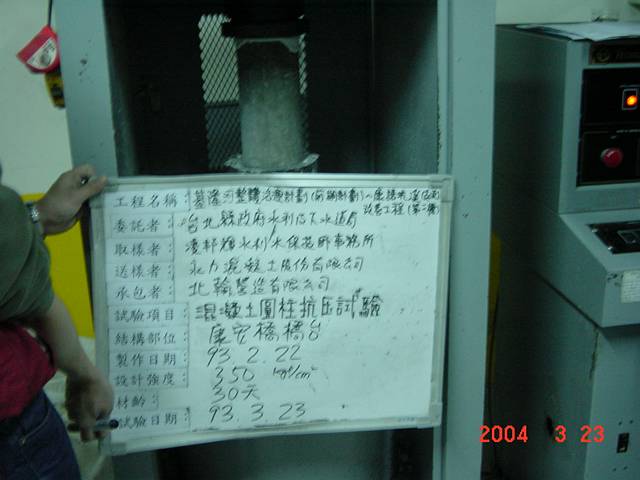 工程名稱：基隆河整體治理計劃(前期計劃)
改善工程(第二標)
委託者：台北縣政府水利及下水道局
取樣者：凌邦輝水利水保技師事務所
送樣者：永力混凝土股份有限公司
承包者：北翰營造有限公司
試驗項目：混凝土圓柱抗压試驗
結構部位：康宏橋橋台
製作日期：93.2.22
設計強度：350 kgf/cm²
材齡：30天
試驗日期：93.3.23
2004 3 23